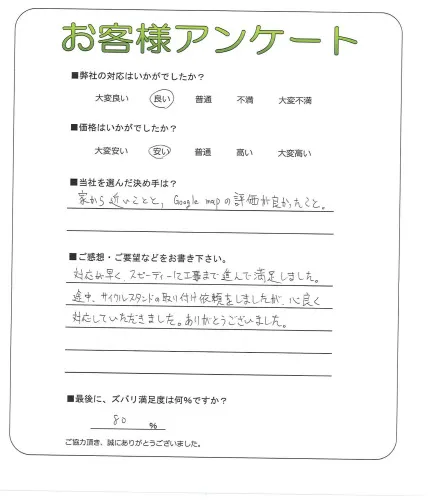 お客様アンケート
■弊社の対応はいかがでしたか？
大変良い 良い 普通 不満 大変不満
■価格はいかがでしたか？
大変安い 安い 普通 高い 大変高い
■当社を選んだ決め手は？
家から近いことと、Google mapの評価が良かったこと。
■ご感想・ご要望などをお書き下さい。
対応が早く、スピーディーに工事まで進んで満足しました。
途中、サイクルスタンドの取り付け依頼をしましたが、心良く
対応していただきました。ありがとうございました。
■最後に、ズバリ満足度は何％ですか？
80 %
ご協力頂き、誠にありがとうございました。